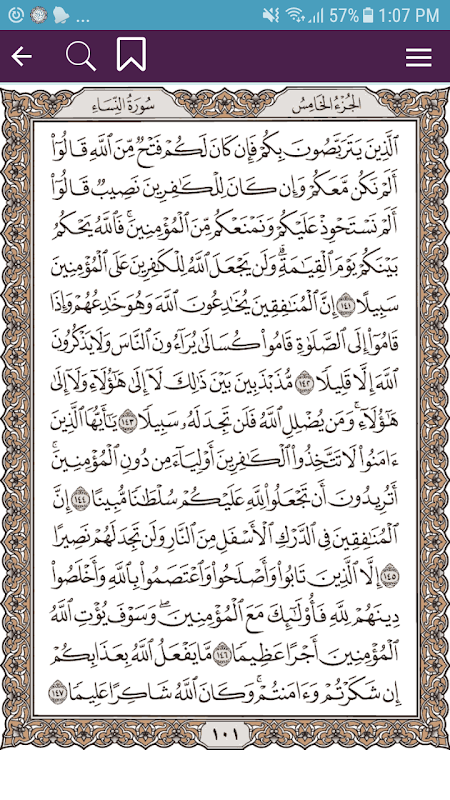 ... 57% 1:07 PM
سُورَةُ النِّسَاءِ الجُزْءُ الخَامِسُ
ٱلَّذِينَ يَتَرَبَّصُونَ بِكُمْ فَإِن كَانَ لَكُمْ فَتْحٌ مِّنَ ٱللَّهِ قَالُوٓاْ
أَلَمْ نَكُن مَّعَكُمْ وَإِن كَانَ لِلْكَٰفِرِينَ نَصِيبٌ قَالُوٓاْ
أَلَمْ نَسْتَحْوِذْ عَلَيْكُمْ وَنَمْنَعْكُم مِّنَ ٱلْمُؤْمِنِينَۚ فَٱللَّهُ يَحْكُمُ
بَيْنَكُمْ يَوْمَ ٱلْقِيَٰمَةِۗ وَلَن يَجْعَلَ ٱللَّهُ لِلْكَٰفِرِينَ عَلَى ٱلْمُؤْمِنِينَ
سَبِيلًا ١٤١ إِنَّ ٱلْمُنَٰفِقِينَ يُخَٰدِعُونَ ٱللَّهَ وَهُوَ خَٰدِعُهُمْ وَإِذَا
قَامُوٓاْ إِلَى ٱلصَّلَوٰةِ قَامُواْ كُسَالَىٰ يُرَآءُونَ ٱلنَّاسَ وَلَا يَذْكُرُونَ
ٱللَّهَ إِلَّا قَلِيلًا ١٤٢ مُّذَبْذَبِينَ بَيْنَ ذَٰلِكَ لَآ إِلَىٰ هَٰٓؤُلَآءِ وَلَآ إِلَىٰ
هَٰٓؤُلَآءِۚ وَمَن يُضْلِلِ ٱللَّهُ فَلَن تَجِدَ لَهُۥ سَبِيلًا ١٤٣ يَٰٓأَيُّهَا ٱلَّذِينَ
ءَامَنُواْ لَا تَتَّخِذُواْ ٱلْكَٰفِرِينَ أَوْلِيَآءَ مِن دُونِ ٱلْمُؤْمِنِينَۚ
أَتُرِيدُونَ أَن تَجْعَلُواْ لِلَّهِ عَلَيْكُمْ سُلْطَٰنًا مُّبِينًا ١٤٤ إِنَّ
ٱلْمُنَٰفِقِينَ فِي ٱلدَّرْكِ ٱلْأَسْفَلِ مِنَ ٱلنَّارِ وَلَن تَجِدَ لَهُمْ نَصِيرًا
١٤٥ إِلَّا ٱلَّذِينَ تَابُواْ وَأَصْلَحُواْ وَٱعْتَصَمُواْ بِٱللَّهِ وَأَخْلَصُواْ
دِينَهُمْ لِلَّهِ فَأُوْلَٰٓئِكَ مَعَ ٱلْمُؤْمِنِينَۖ وَسَوْفَ يُؤْتِ ٱللَّهُ
ٱلْمُؤْمِنِينَ أَجْرًا عَظِيمًا ١٤٦ مَّا يَفْعَلُ ٱللَّهُ بِعَذَابِكُمْ
إِن شَكَرْتُمْ وَءَامَنتُمْۚ وَكَانَ ٱللَّهُ شَاكِرًا عَلِيمًا ١٤٧
١٠١